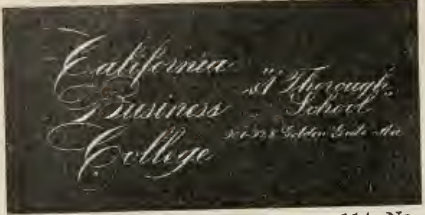 California
Business
College
"A Thorough
School"
Golden Gate Ave
No